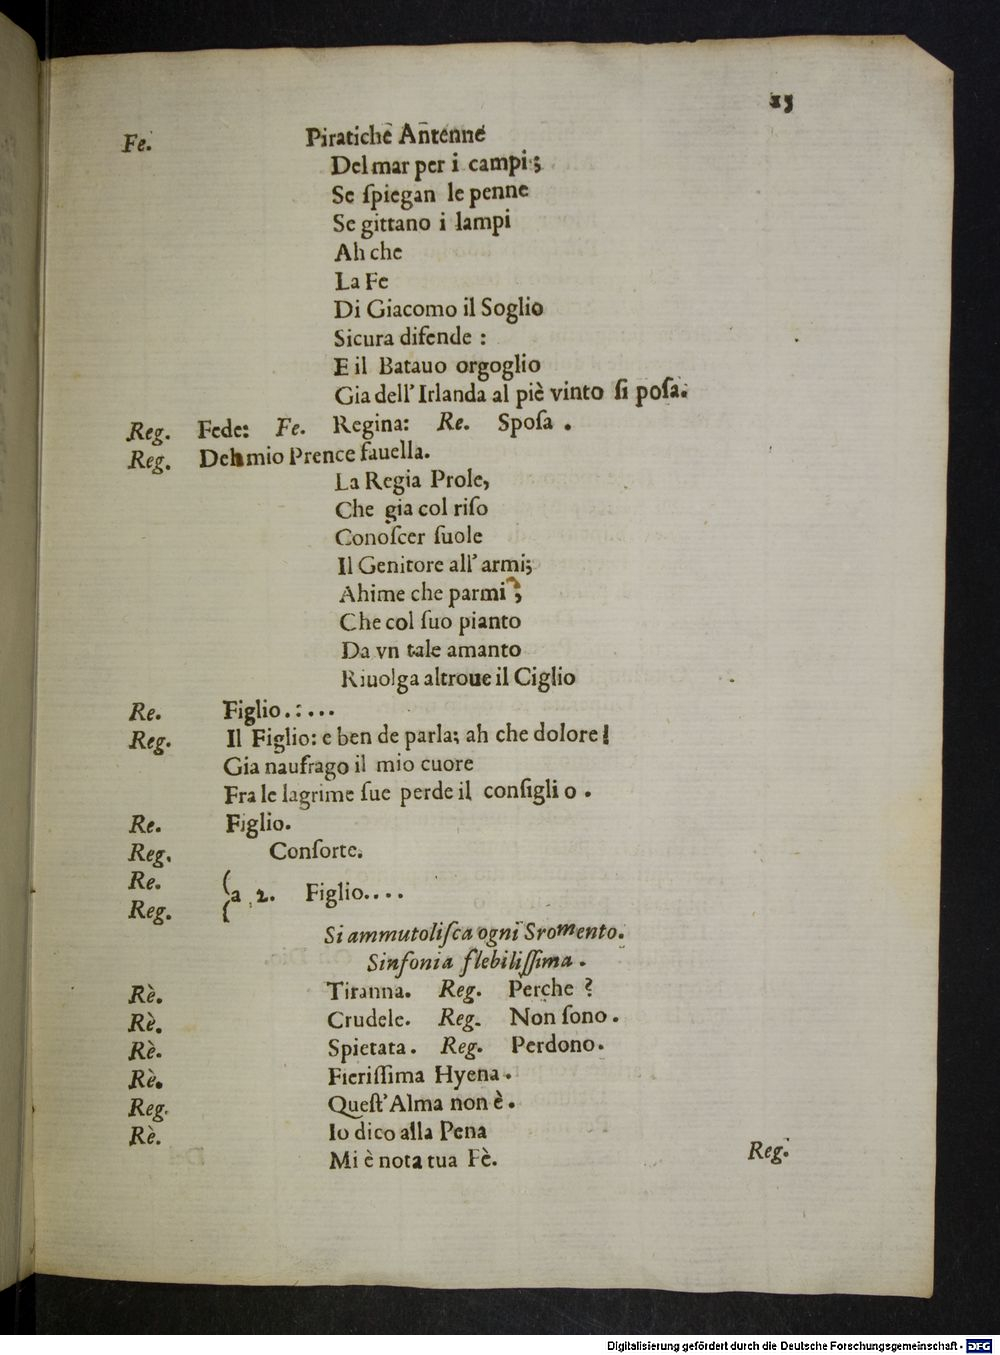 15
Fe. Piratiche Antenne
Del mar per i campi;
Se ſpiegan le penne
Se gittano i lampi
Ah che
La Fe
Di Giacomo il Soglio
Sicura difende :
E il Batauo orgoglio
Gia dell' Irlanda al piè vinto ſi poſa.
Reg. Fede: Fe. Regina: Re. Spoſa .
Reg. Deh mio Prence fauella.
La Regia Prole,
Che gia col riſo
Conoſcer ſuole
Il Genitore all' armi;
Ahime che parmi ;
Che col ſuo pianto
Da vn tale amanto
Riuolga altroue il Ciglio
Re. Figlio. : ...
Reg. Il Figlio: e ben de parla; ah che dolore!
Gia naufrago il mio cuore
Fra le lagrime ſue perde il conſigli o .
Re. Figlio.
Reg. Conſorte.
Re.
Reg. a 2. Figlio....
Si ammutoliſca ogni Sromento.
Sinfonia flebiliſſima .
Rè. Tiranna. Reg. Perche ?
Rè. Crudele. Reg. Non ſono .
Rè. Spietata . Reg. Perdono.
Rè. Fieriſſima Hyena .
Reg. Queſt' Alma non è .
Rè. Io dico alla Pena
Mi è nota tua Fè.
Reg.
Digitalisierung gefördert durch die Deutsche Forschungsgemeinschaft - DFG